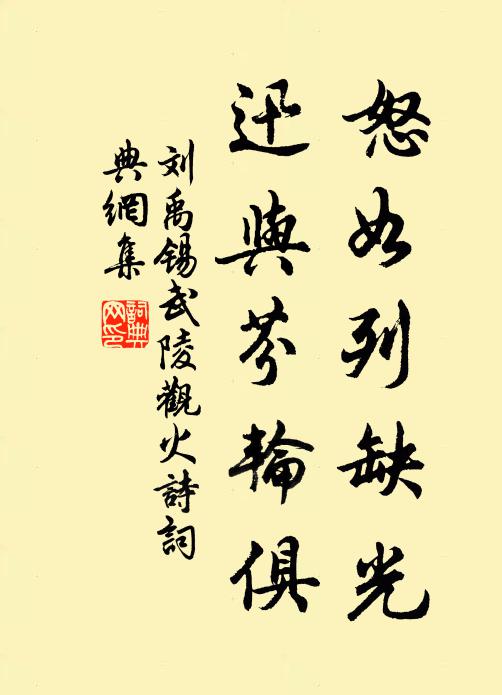 怒如列缺光
迅與芬輪俱
刘禹锡武陵觀火詩詞
典網集
詞典网印